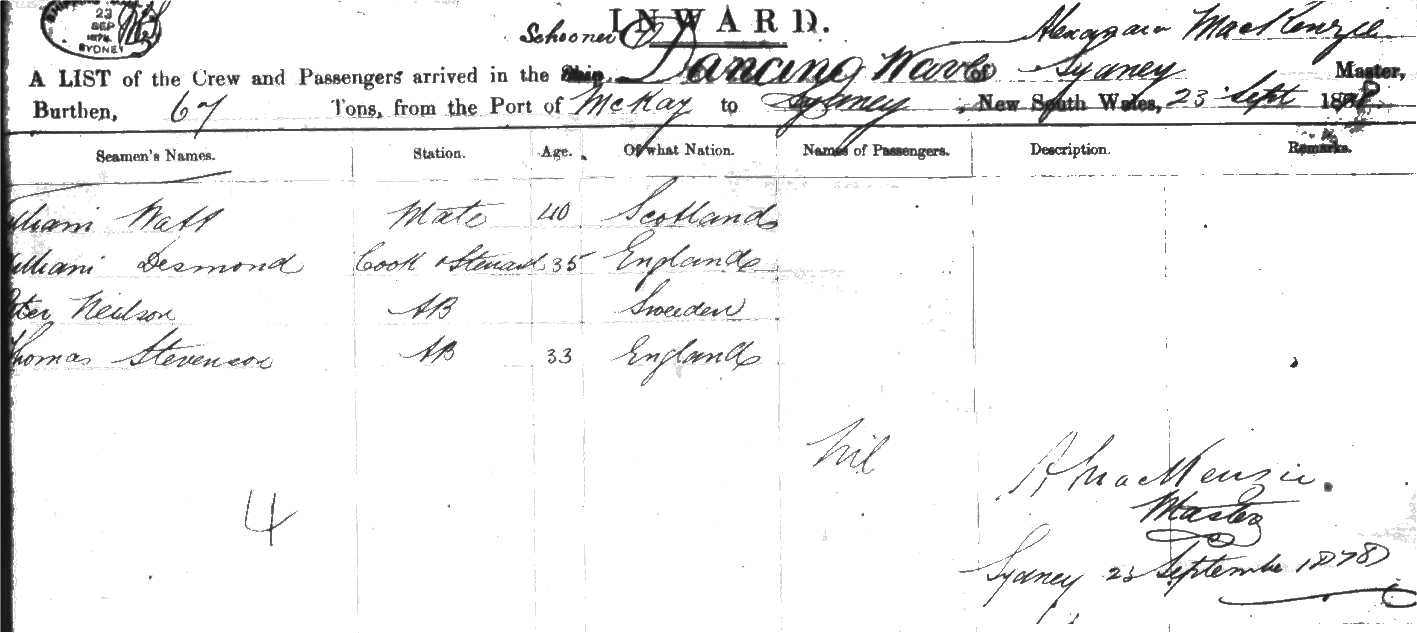 23
SEP
1878
SYDNEY
INWARD.
Schooner
Alexander MacKenzie
A LIST of the Crew and Passengers arrived in the Ship Dancing Wave of Sydney Master,
Burthen, 67 Tons, from the Port of McKay to Sydney, New South Wales, 23 Sept 1878
Seamen's Names. Station. Age. Of what Nation. Names of Passengers. Description. Remarks.
William Watt Mate 40 Scotland
William Desmond Cook & Steward 35 England
Peter Neilson AB Sweden
Thomas Stevenson AB 33 England
Nil
A MacKenzie
Master
4
Sydney 23 September 1878